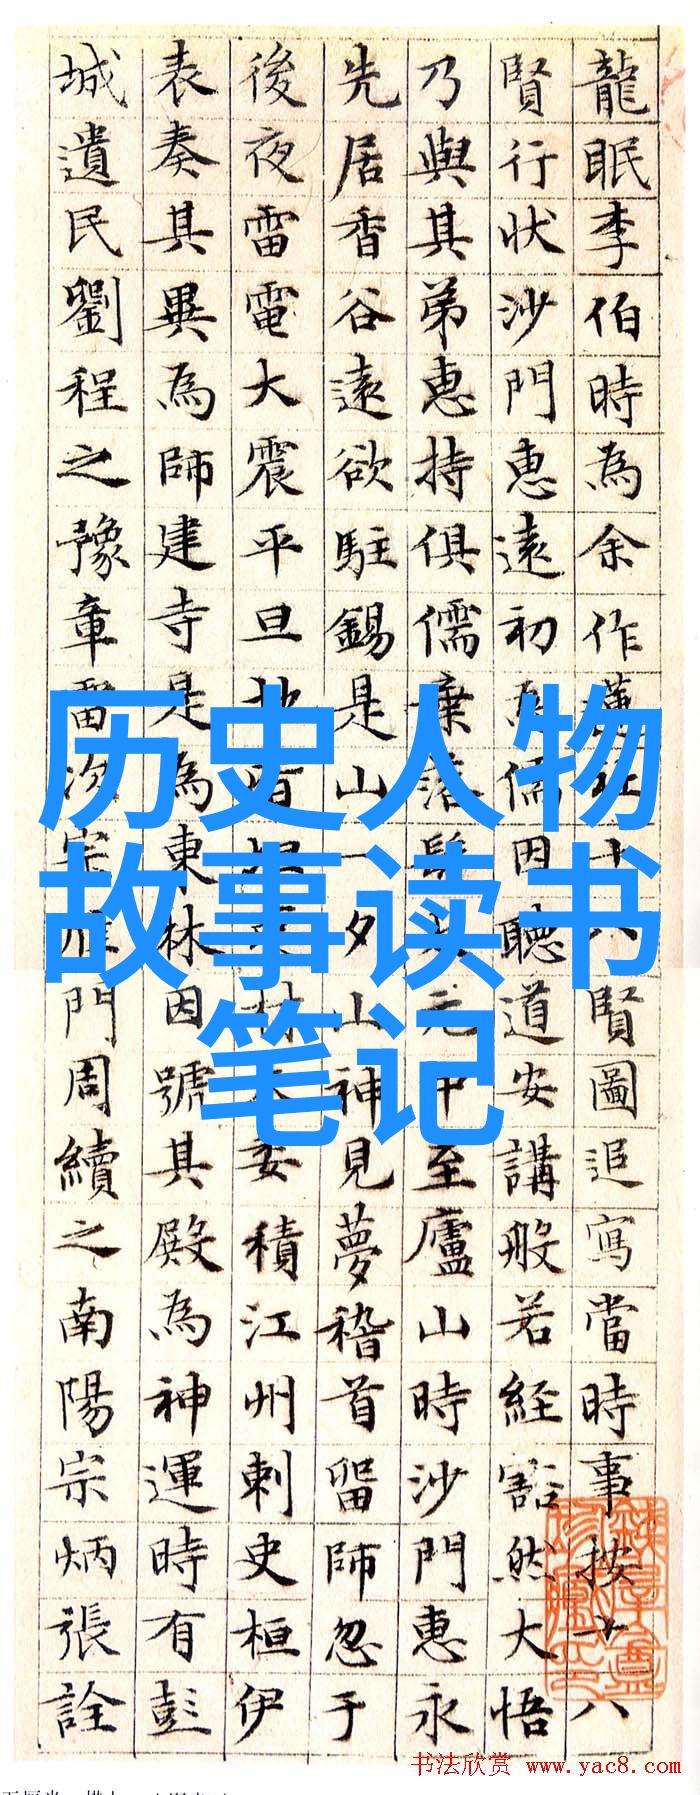 龍眠李伯時為余作蓮社十八賢圖追寫當時事按十八
賢行狀沙門惠遠初為儒因聽道安講般若經豁然大悟
乃與其弟惠持俱儒棄落髮元中至廬山時沙門惠永
先居香谷遠欲駐錫是山一夕山神見夢稽首留師忽于
後夜雷電大震平旦地皆材木委積江州刺史桓伊
表奏其異為師建寺是為東林因號其殿為神運時有彭
城遺民劉程之豫章雷次宗雁門周續之南陽宗炳張詮
历史人物
故事读书
笔记
书法欣赏 www.yac8.com